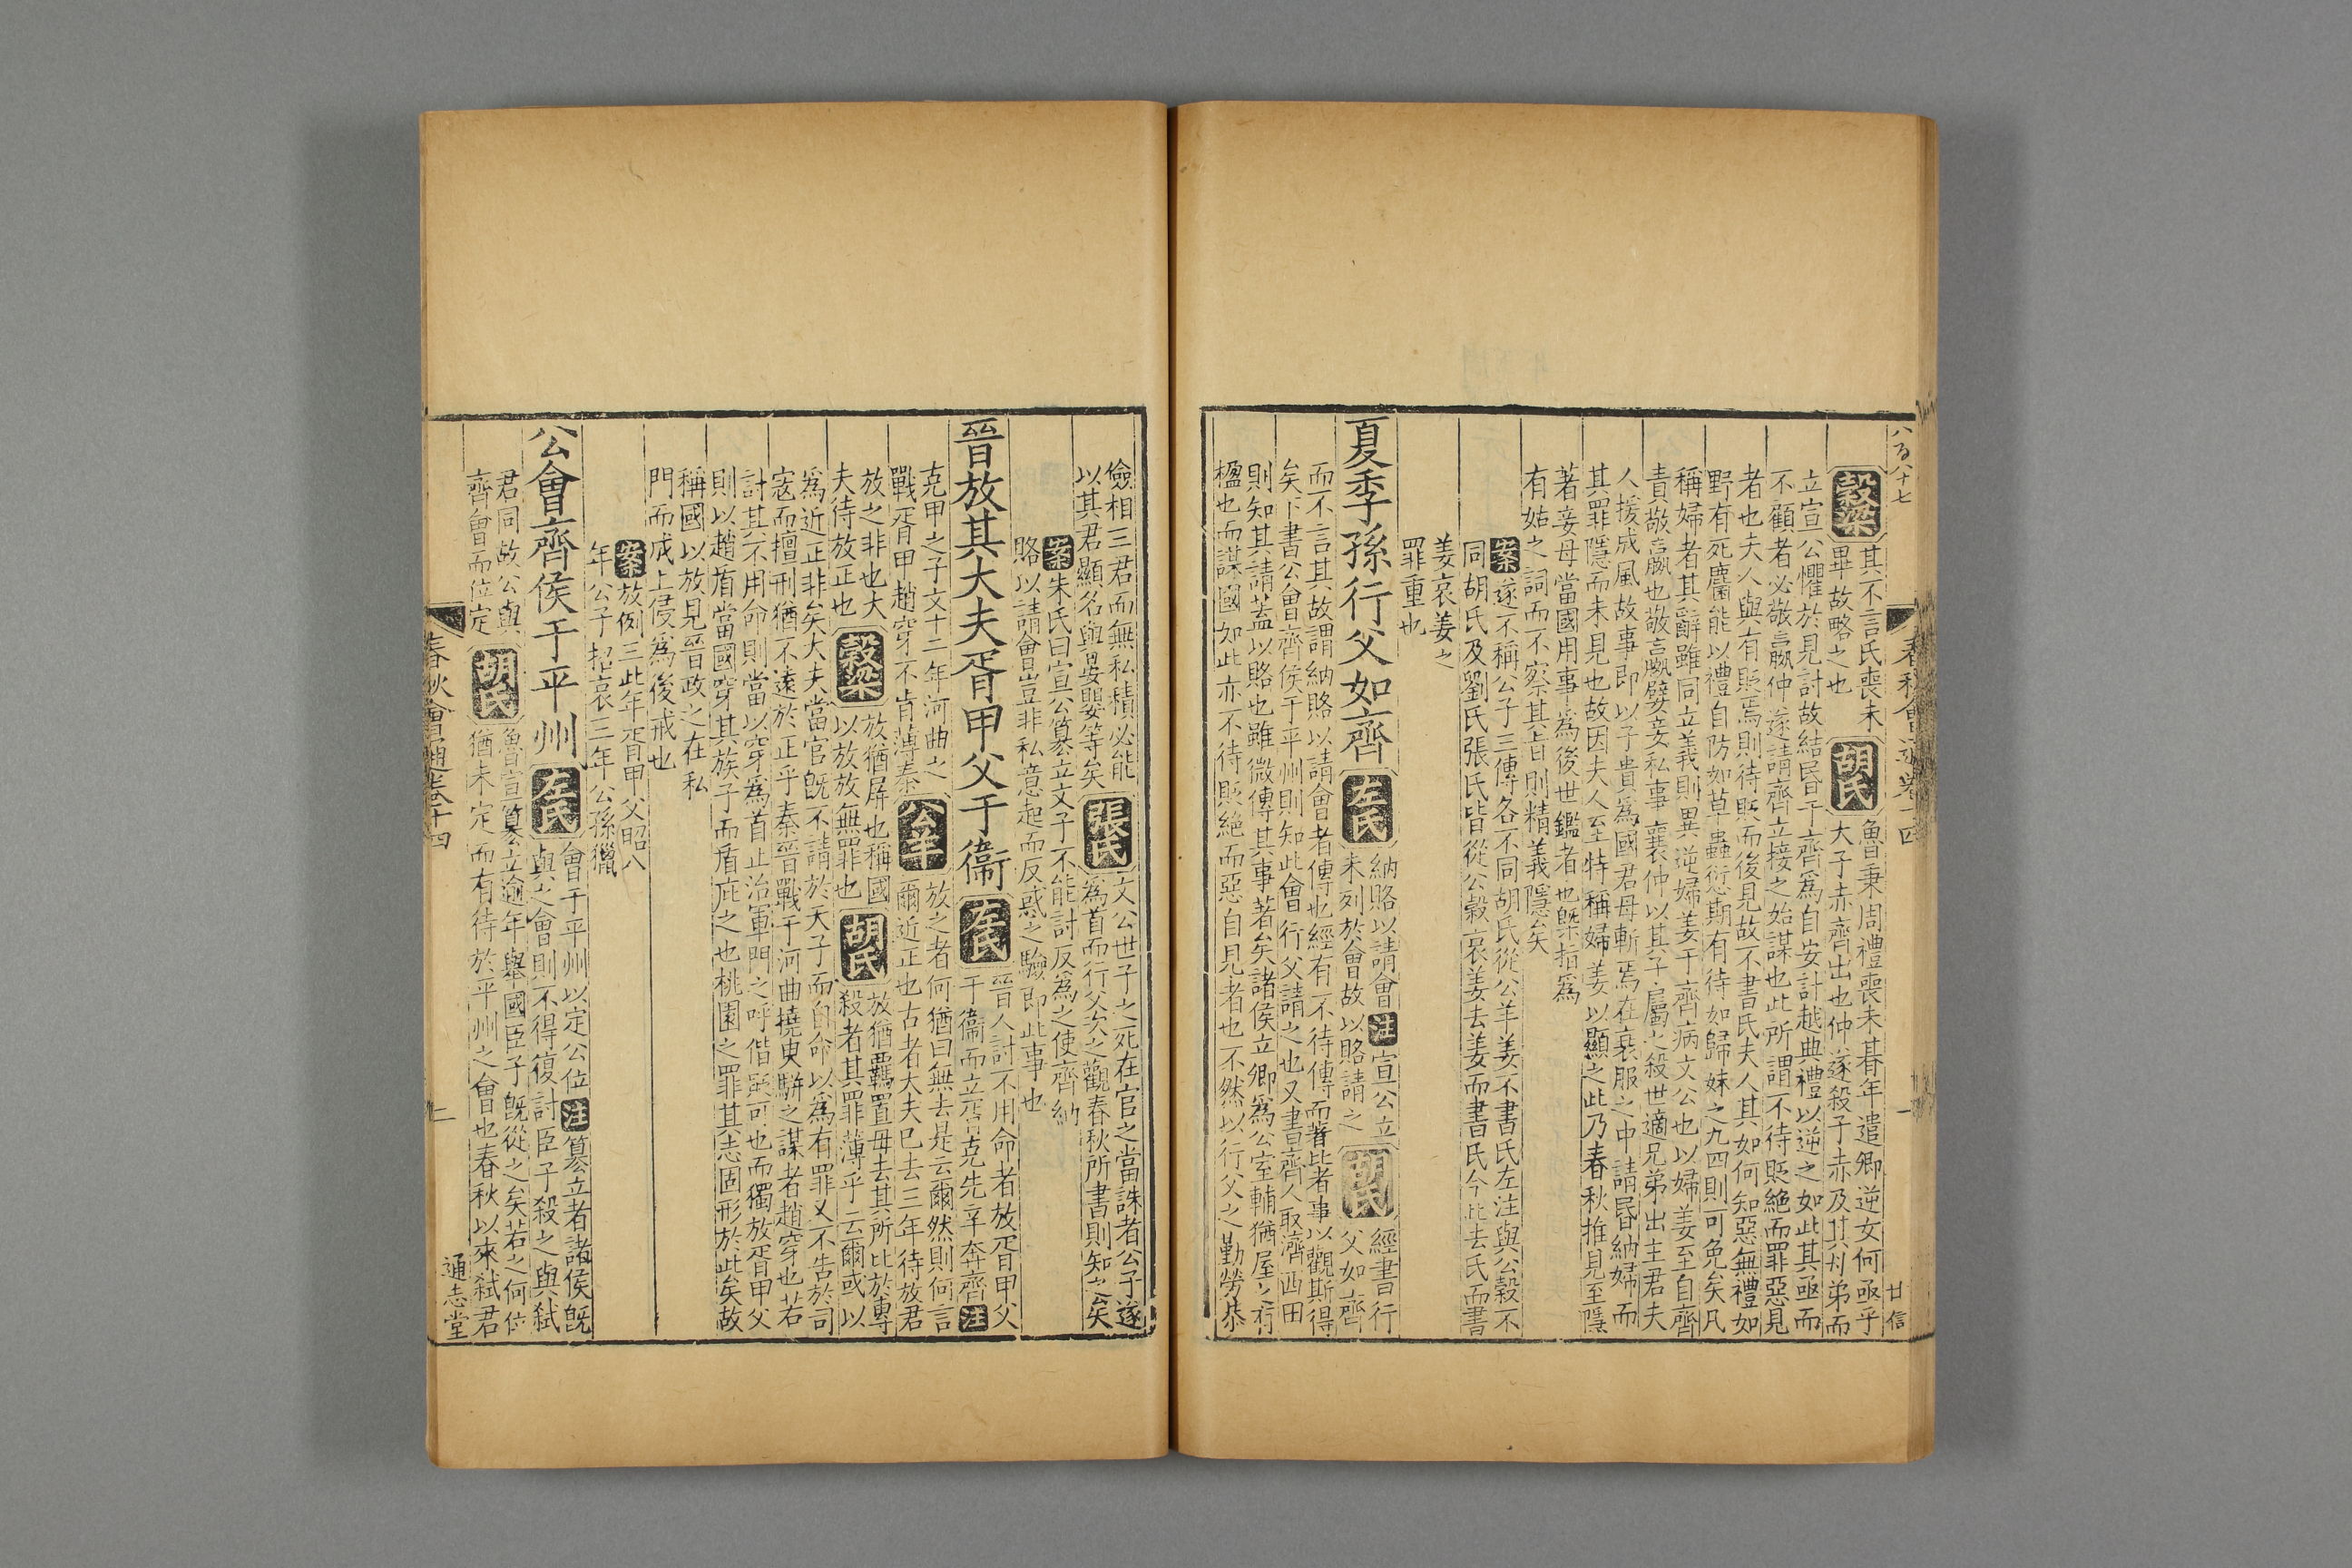 八百八十七
春秋會通卷十四
一
甘信
穀梁 其不言氏喪未
畢故略之也
胡氏 魯秉周禮喪未朞年遣卿逆女何亟乎
大子赤齊出也仲遂殺子赤及其母弟而
立宣公懼於見討故結昏于齊爲自安計越典禮以逆之如此其亟而
不顧者必敬嬴仲遂請齊立接之始謀也此所謂不待貶絕而罪惡見
者也夫人與有貶焉則待貶而後見故不書氏夫人其如何知惡無禮如
野有死麕能以禮自防如草蟲愆期有待如歸妹之九四則可免矣凡
稱婦者其辭雖同立義則異逆婦姜于齊病文公也以婦姜至自齊
責敬嬴也敬嬴嬖妾私事襄仲以其子屬之殺世適兄弟出主君夫
人援成風故事即以子貴爲國君母斬焉在衰服之中請昏納婦而
其罪隱而未見也故因夫人至特稱婦姜以顯之此乃春秋推見至隱
著妾母當國用事爲後世鑑者也槩指爲
有姑之詞而不察其旨則精義隱矣
案遂不稱公子三傳各不同胡氏從公羊姜不書氏左注與公穀不
同胡氏及劉氏張氏皆從公穀哀姜去姜而書氏今此去氏而書
姜哀姜之
罪重也
夏季孫行父如齊
左氏 納賂以請會注宣公立
未列於會故以賂請之
胡氏 經書行
父如齊
而不言其故謂納賂以請會者傳也經有不待傳而著者比事以觀斯得
矣下書公會齊侯于平州則知此會行父請之也又書齊人取濟西田
則知其請蓋以賂也雖微傳其事著矣諸侯立卿爲公室輔猶屋之有
楹也而謀國如此亦不待貶絕而惡自見者也不然以行父之勤勞恭
儉相三君而無私積必能
以其君顯名與晏嬰等矣
張氏 文公世子之死在官之當誅者公子遂
爲首而行父次之觀春秋所書則知之矣
案朱氏曰宣公簒立文子不能討反爲之使齊納
賂以請會豈非私意起而反惑之驗即此事也
晉放其大夫胥甲父于衞
左氏 晉人討不用命者放胥甲父
于衞而立胥克先辛奔齊注
克甲之子文十二年河曲之
戰胥甲趙穿不肯薄秦
公羊 放之者何猶曰無去是云爾然則何言
爾近正也古者大夫已去三年待放君
放之非也大
夫待放正也
穀梁 放猶屏也稱國
以放放無罪也
胡氏 放猶羈置毋去其所比於專
殺者其罪薄乎云爾或以
爲近正非矣大夫當官旣不請於天子而自命以爲有罪又不告於司
寇而擅刑猶不遠於正乎秦晉戰于河曲撓臾騈之謀者趙穿也若
討其不用命則當以穿爲首止治軍門之呼偕貶可也而獨放胥甲父
則以趙盾當國穿其族子而盾庇之也桃園之罪其志固形於此矣故
稱國以放見晉政之在私
門而成上侵爲後戒也
案放例三此年胥甲父昭八
年公子招哀三年公孫獵
公會齊侯于平州
左氏 會于平州以定公位注簒立者諸侯旣
與之會則不得復討臣子殺之與弑
君同故公與
齊會而位定
胡氏 魯宣簒立逾年舉國臣子旣從之矣若之何位
猶未定而有待於平州之會也春秋以來弑君
春秋會通卷十四
二
通志堂